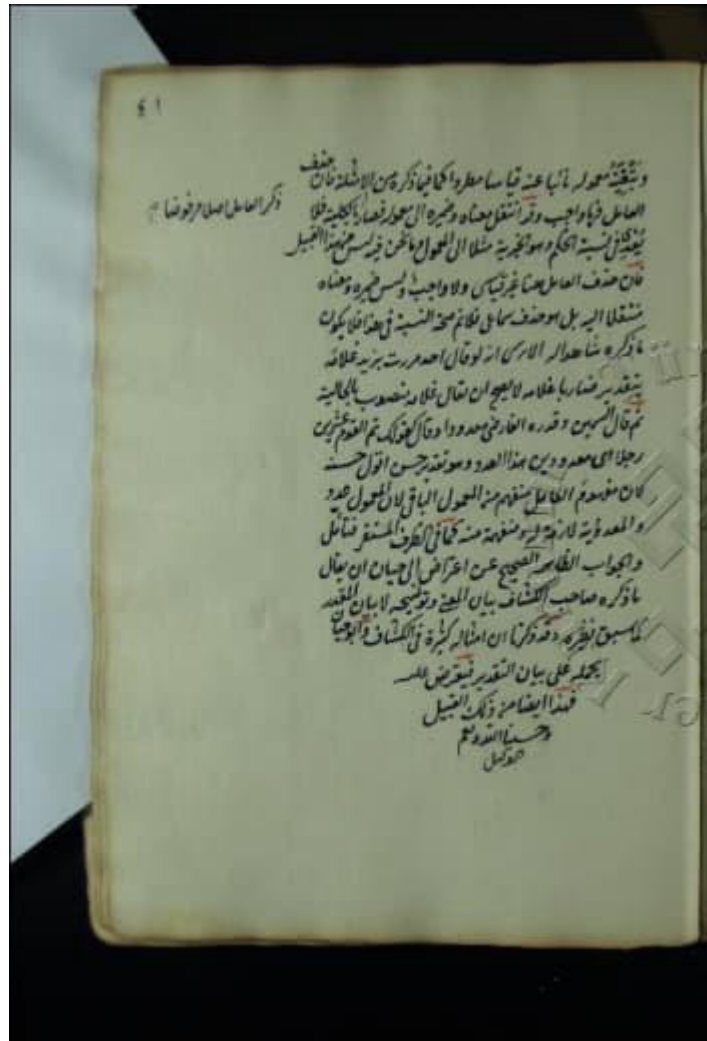 ٤١
وتبقية معموله نائبا عنه قياسا مطردا كما فيما ذكره من الامثلة فان حذف
ذكر العامل اصلا مرفوضا
العامل فيها واجب وقد انتقل معناه وضميره الى معموله فصار بالكلية فلا
في نسبة الحكم وهو مثلا الى المعمول وما نحن فيه ليس من هذا القبيل
فان حذف العامل هنا غير قياسى ولا واجب وليس ضميره ومعناه
منتقلا اليه بل هو حذف سماعى فلانم صحة النسبة فى هذا فلا يكون
ما ذكره شاهدا له الا رى انه لو قال احد مررت بزيد غلامه
بتقدير ضاربا غلامه لا يصح ان يقال غلامه منصوب بالحالية
ثم قال السمين وقدره الفارسى معدودا وقال كقولك تم القوم عشرين
رجلا اى معدودين هذا العدد وهو تقدير حسن اقول حسنه
كان مفهوم العامل منفهم من المعمول الباقى لان المعمول عدد
والمعدودية لازمة له ومنفهمة منه كما فى الظرف المستقر فتأمل
والجواب الظاهر الصحيح عن اعتراض ابى حيان ان يقال
ما ذكره صاحب الكشاف بيان المعنى وتوضيحه لا بيان المقدر
كما سبق نظيره وقد ذكرنا ان امثاله كثيرة فى الكشاف وابو حيان
يحمله على بيان التقدير فيعترض عليه
فهذا ايضا من ذلك القبيل
وحسبنا الله ونعم
الوكيل